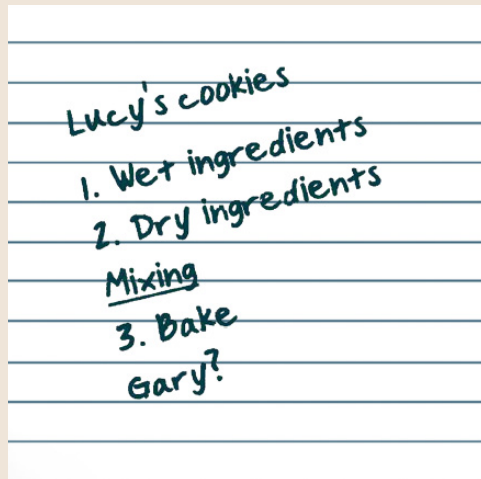 Lucy's cookies
1. Wet ingredients
2. Dry ingredients
Mixing
3. Bake
Gary?